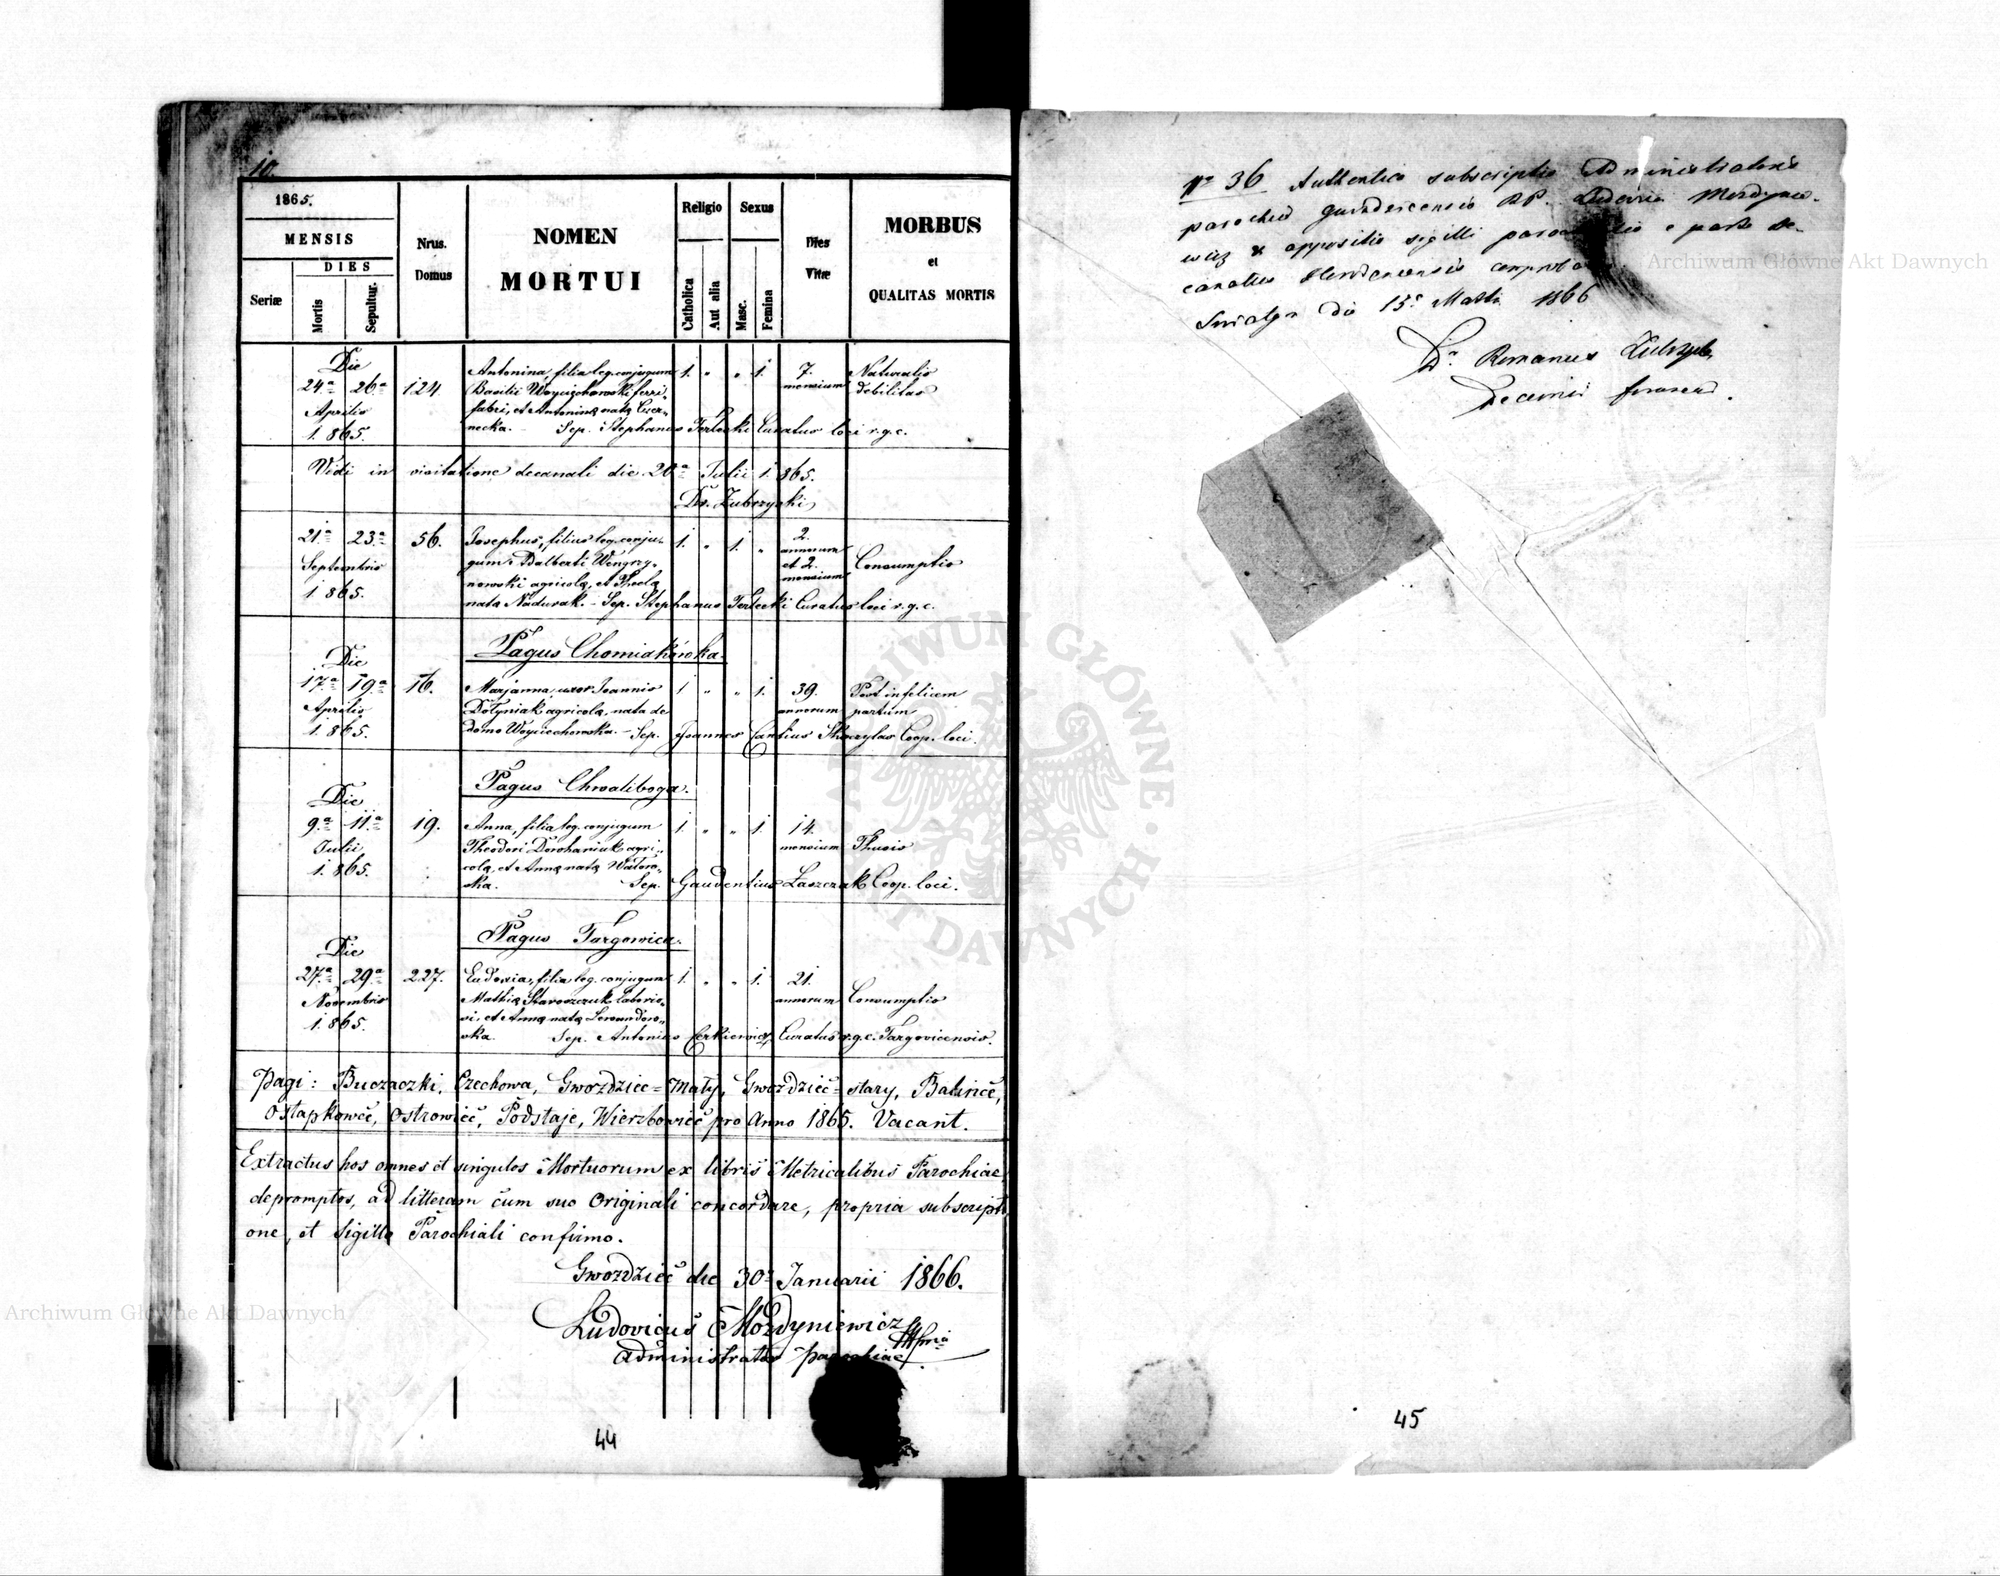 10.
1865.
MENSIS
DIES
Seriæ
Mortis
Sepultur.
Nrus.
Domus
NOMEN
MORTUI
Religio
Catholica
Aut alia
Sexus
Masc.
Femina
Dies
Vitæ
MORBUS
et
QUALITAS MORTIS
Die
24ª 26ª
Aprilis
1865.
124.
Antonina, filia leg. conjugum
Basilii Woyciechowski ferri-
fabri, et Antoninæ natæ
necka. - Sep. Stephanus Terlecki Curatus loci r.g.c.
1. " " 1.
7.
mensium
Naturalis
debilitas
Vidi in visitatione decanali die 20ª Julii 1865.
Dr. Zubrzycki
21ª 23ª
Septembris
1865.
56.
Josephus, filius leg. conju-
gum Adalberti Wengrzy-
nowski agricolæ, et Theclæ
nata Nadurak. - Sep. Stephanus Terlecki Curatus loci r.g.c.
1. " 1. "
2.
annorum
et 2.
mensium
Consumptio
Pagus Chomiakówka.
Die
17ª 19ª
Aprilis
1865.
16.
Marjanna, uxor Joannis
Dołyniak agricolæ, nata de
domo Woyciechowska. - Sep. Joannes Cantius Skoczylas Coop. loci.
1 " " 1.
39.
annorum
Post infelicem
partum
Pagus Chwaliboga.
Die
9ª 11ª
Julii
1865.
19.
Anna, filia leg. conjugum
Theodori Dorohaniuk agri-
colæ, et Annæ natæ
ska. Sep. Gaudentius Laszczak Coop. loci.
1. " " 1.
14.
mensium
Thusis
Pagus Targowica.
Die
27ª 29ª
Novembris
1865.
227.
Eudoxia, filia leg. conjugum
Mathiæ Staroszczuk laborio-
si, et Annæ natæ
ska. Sep. Antonius Cerkiewicz Curatus r.g.c. Targovicensis.
1. " " 1.
21.
annorum
Consumptio
Pagi: Buczaczki, Czechowa, Gwoździec-Mały, Gwoździec-stary, Balince,
Ostapkowce, Ostrowiec, Podstaje, Wierzbowiec pro Anno 1865. Vacant.
Extractus hos omnes et singulos Mortuorum ex libris Metricalibus Parochiae
depromptos, ad litteram cum suo Originali concordare, propria subscripti
one, et Sigillo Parochiali confirmo.
Gwoździec die 30ª Januarii 1866.
Ludovicus Mozdyniewicz
administrator parochiae
44
Nº 36 Authentica subscriptio Administratoris
parochiae RP. Mozdynie-
wicz & appositio sigilli e parte de-
canatus
die 15ª 1866
Dr Romanus Zubrzycki
Decanus foraneus.
45
Archiwum Główne Akt Dawnych
Archiwum Główne Akt Dawnych
ARCHIWUM GŁÓWNE AKT DAWNYCH